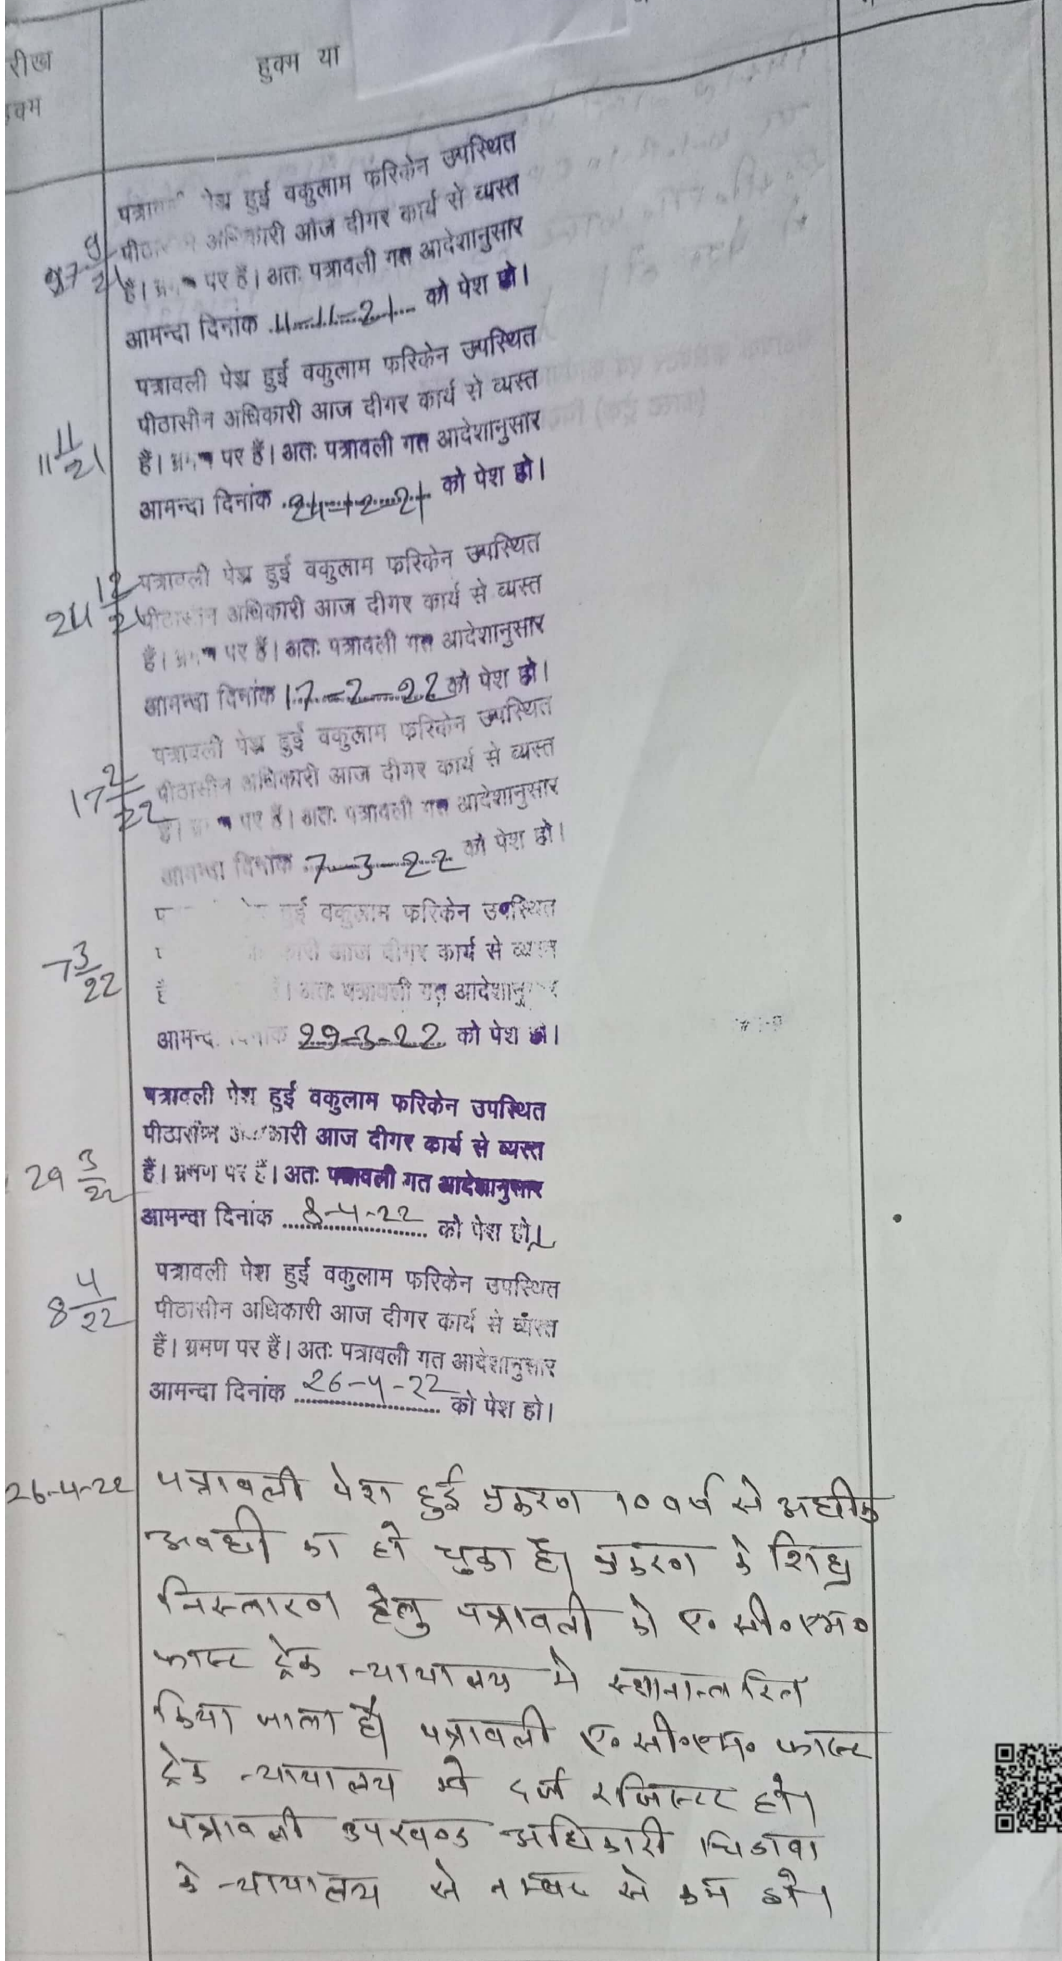 रीख
हुक्म या
क्म
पेश हुई वकुलाम फरिकेन उपस्थित
अधिकारी आज दीगर कार्य से व्यस्त
27 9/21
है। पर हैं। अतः पत्रावली गत आदेशानुसार
आमन्दा दिनांक 11-11-21 को पेश हो।
पत्रावली पेश हुई वकुलाम फरिकेन उपस्थित
पीठासीन अधिकारी आज दीगर कार्य से व्यस्त
11 11/21
हैं। पर हैं। अतः पत्रावली गत आदेशानुसार
आमन्दा दिनांक 24-12-21 को पेश हो।
24 12/21
पत्रावली पेश हुई वकुलाम फरिकेन उपस्थित
पीठासीन अधिकारी आज दीगर कार्य से व्यस्त
हैं। पर हैं। अतः पत्रावली गत आदेशानुसार
आमन्दा दिनांक 17-2-22 को पेश हो।
पत्रावली पेश हुई वकुलाम फरिकेन उपस्थित
17 2/22
पीठासीन अधिकारी आज दीगर कार्य से व्यस्त
है। पर हैं। अतः पत्रावली गत आदेशानुसार
आमन्दा दिनांक 7-3-22 को पेश हो।
हुई वकुलाम फरिकेन उपस्थित
7 3/22
कारी आज दीगर कार्य से व्यस्त
है । अतः पत्रावली गत आदेशानुसार
आमन्द दिनांक 29-3-22 को पेश हो।
पत्रावली पेश हुई वकुलाम फरिकेन उपस्थित
पीठासीन अधिकारी आज दीगर कार्य से व्यस्त
29 3/22
हैं। भ्रमण पर हैं। अतः पत्रावली गत आदेशानुसार
आमन्दा दिनांक 8-4-22 को पेश हो।
पत्रावली पेश हुई वकुलाम फरिकेन उपस्थित
8 4/22
पीठासीन अधिकारी आज दीगर कार्य से व्यस्त
हैं। भ्रमण पर हैं। अतः पत्रावली गत आदेशानुसार
आमन्दा दिनांक 26-4-22 को पेश हो।
26-4-22 पत्रावली पेश हुई प्रकरण 10 वर्ष से अधीक
अवधी का हो चुका है। प्रकरण के शिघ्र
निस्तारण हेतु पत्रावली को ए॰ सी॰एम॰
फास्ट ट्रेक न्यायालय मे स्थानान्तरित
किया जाता है। पत्रावली ए॰ सी॰एम॰ फास्ट
ट्रेक न्यायालय मे दर्ज रजिस्टर हो।
पत्रावली उपखण्ड अधिकारी चिडावा
के न्यायालय से नम्बर से कम हो।